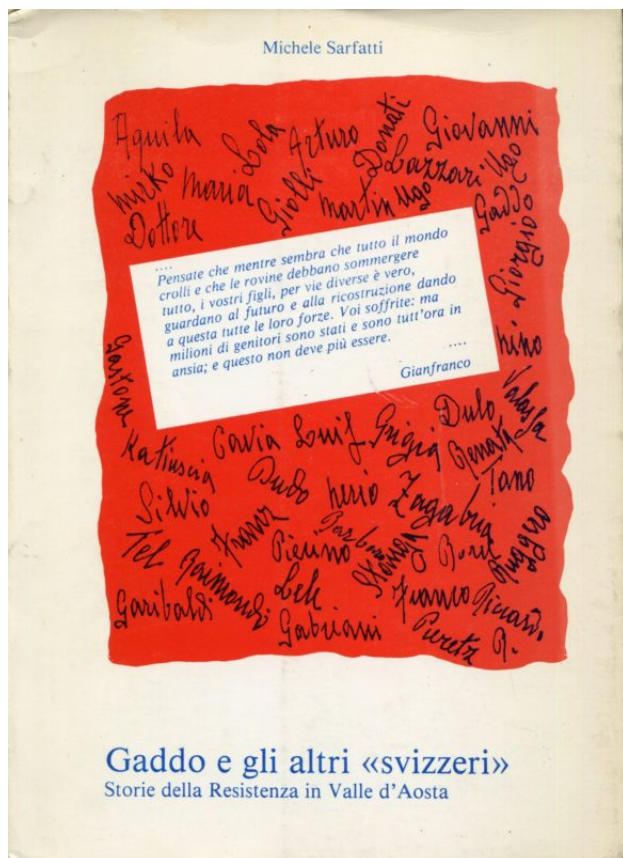 Michele Sarfatti
Aquila Lola Arturo Donati Giovanni
Mirko Maria Giolli Lazzari Ugo
Dottore Martin Ugo Gaddo
Giorgio
....
Pensate che mentre sembra che tutto il mondo
crolli e che le rovine debbano sommergere
tutto, i vostri figli, per vie diverse è vero,
guardano al futuro e alla ricostruzione dando
a questa tutte le loro forze. Voi soffrite: ma
milioni di genitori sono stati e sono tutt'ora in
ansia; e questo non deve più essere.
....
Gianfranco
Gastone
nino
Katiuscia Pavia Luif Grigia Dulo
Renata Tano
Silvio Dudo nerio Zagabria
Tel Franz Pierino Ruggero
Garibaldi Raimondi Lele Franco
Gabriani Peretz R.
Gaddo e gli altri «svizzeri»
Storie della Resistenza in Valle d'Aosta